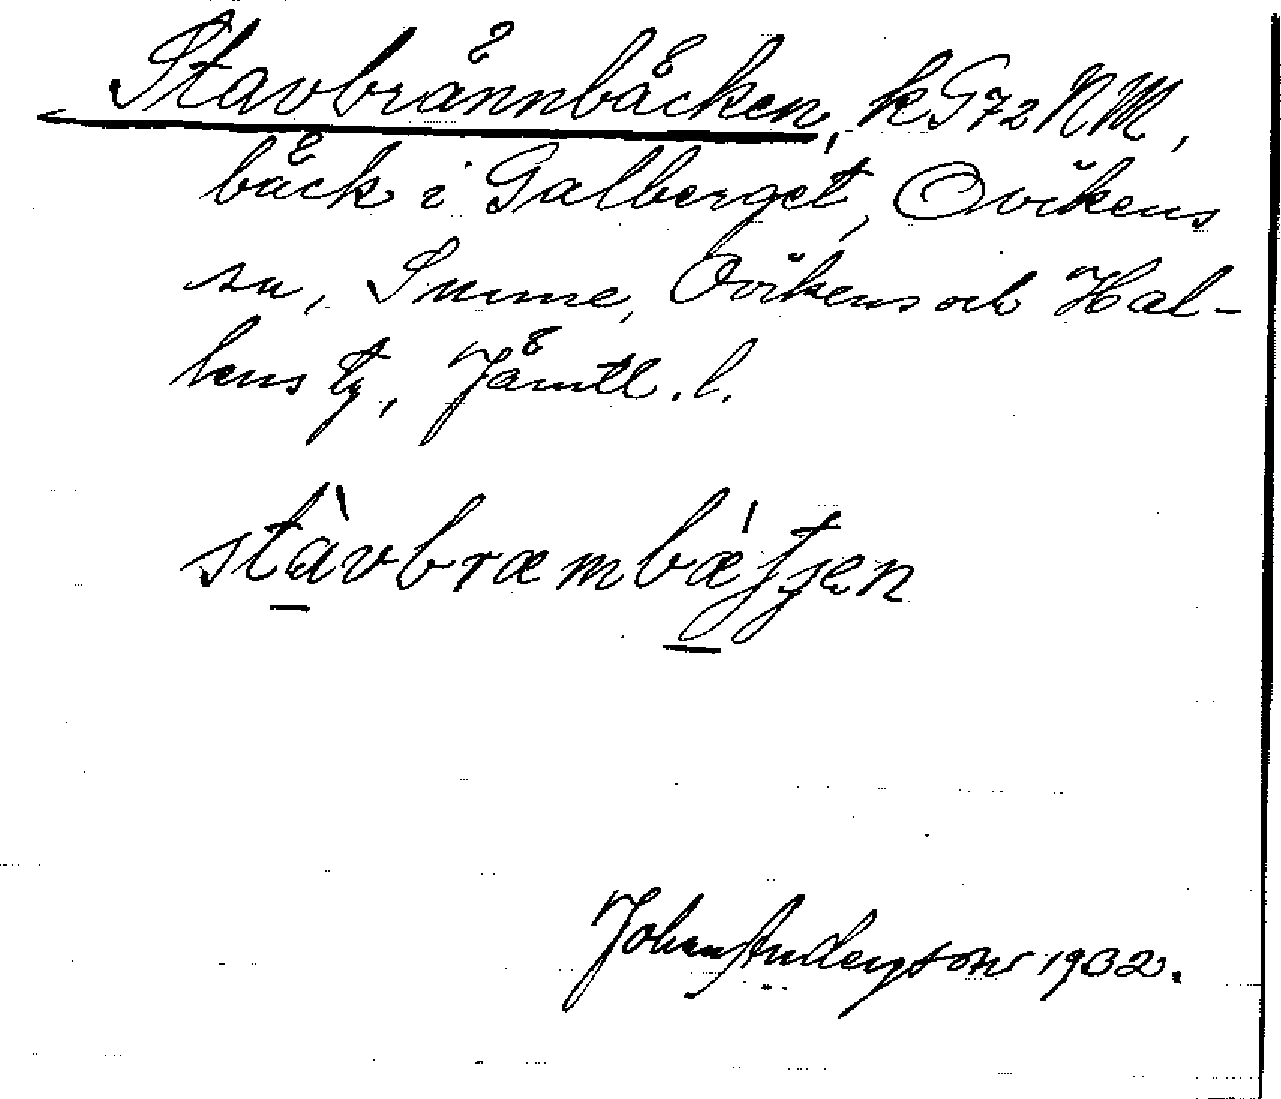 Stavbrännbäcken, k G 72 NM,
bäck i Galberget, Ovikens
sn, Sunne, Ovikens och Hal-
lens tg, Jämtl. l.
stàvbræmbǽttjen
Johan Anderssons 1932.